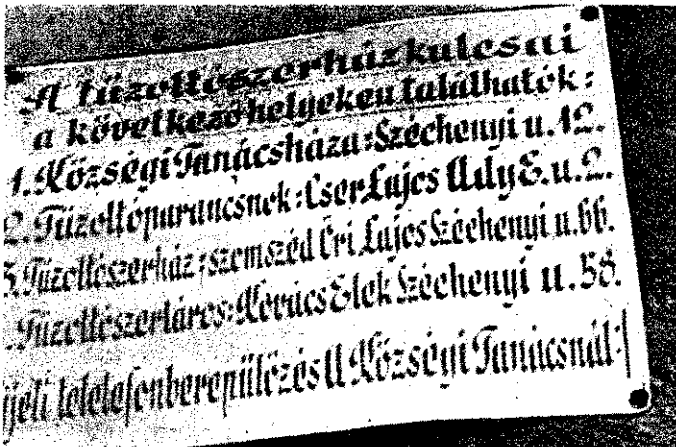 A tűzoltószerház kulcsai
a következő helyeken találhatók:
1. Községi Tanácsháza: Széchenyi u. 12.
2. Tűzoltóparancsnok: Cser Lajos Ady E. u. 2.
3. Tűzoltószerház: szemszéd Őri Lajos Széchenyi u. 66.
. Tűzoltószertáros: Kovács Elek Széchenyi u. 58.
A Községi Tanácsnál: